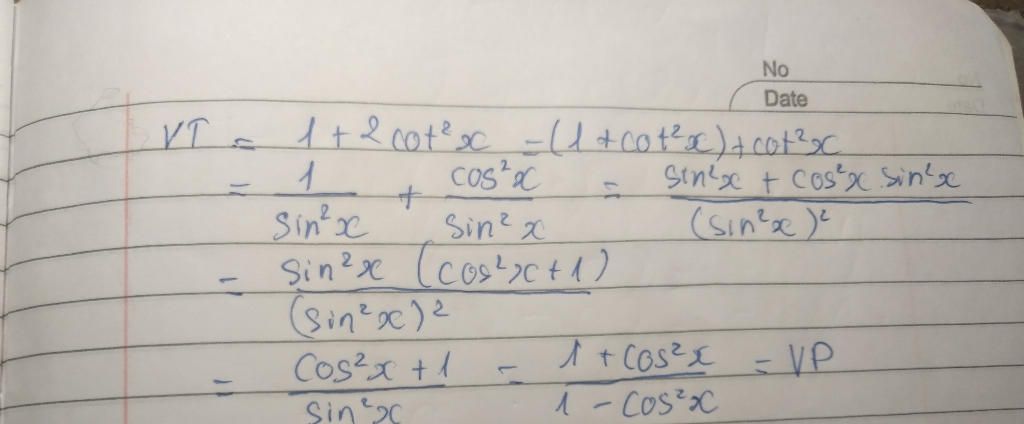 No
Date
VT = 1 + 2 cot²x = (1 + cot²x) + cot²x
= 1/sin²x + cos²x/sin²x = (sin²x + cos²x.sin²x)/(sin²x)²
= sin²x (cos²x + 1)/(sin²x)²
= (cos²x + 1)/sin²x = (1 + cos²x)/(1 - cos²x) = VP